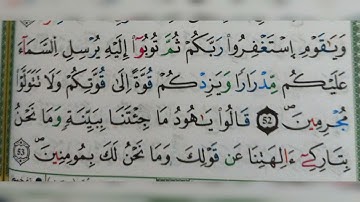 وَيَٰقَوْمِ اِ۪سْتَغْفِرُواْ رَبَّكُمْ ثُمَّ تُوبُوٓاْ إِلَيْهِ يُرْسِلِ اِ۬لسَّمَآءَ
عَلَيْكُم مِّدْرَاراً وَيَزِدْكُمْ قُوَّةً إِلَىٰ قُوَّتِكُمْ وَلَا تَتَوَلَّوْاْ
مُجْرِمِينَۖ 52 قَالُواْ يَٰهُودُ مَا جِئْتَنَا بِبَيِّنَةٍ وَمَا نَحْنُ
بِتَارِكِےٓ ءَالِهَتِنَا عَن قَوْلِكَ وَمَا نَحْنُ لَكَ بِمُومِنِينَۖ 53